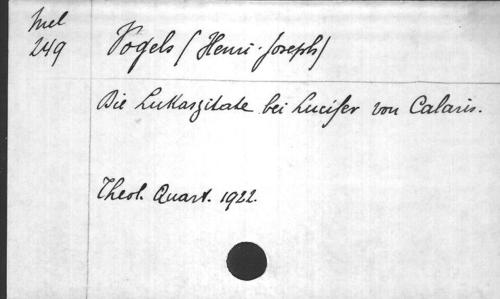 Mel
249
Vogels (Henri-Joseph)
Die Lukaszitate bei Lucifer von Calaris.
Theol. Quart. 1922.